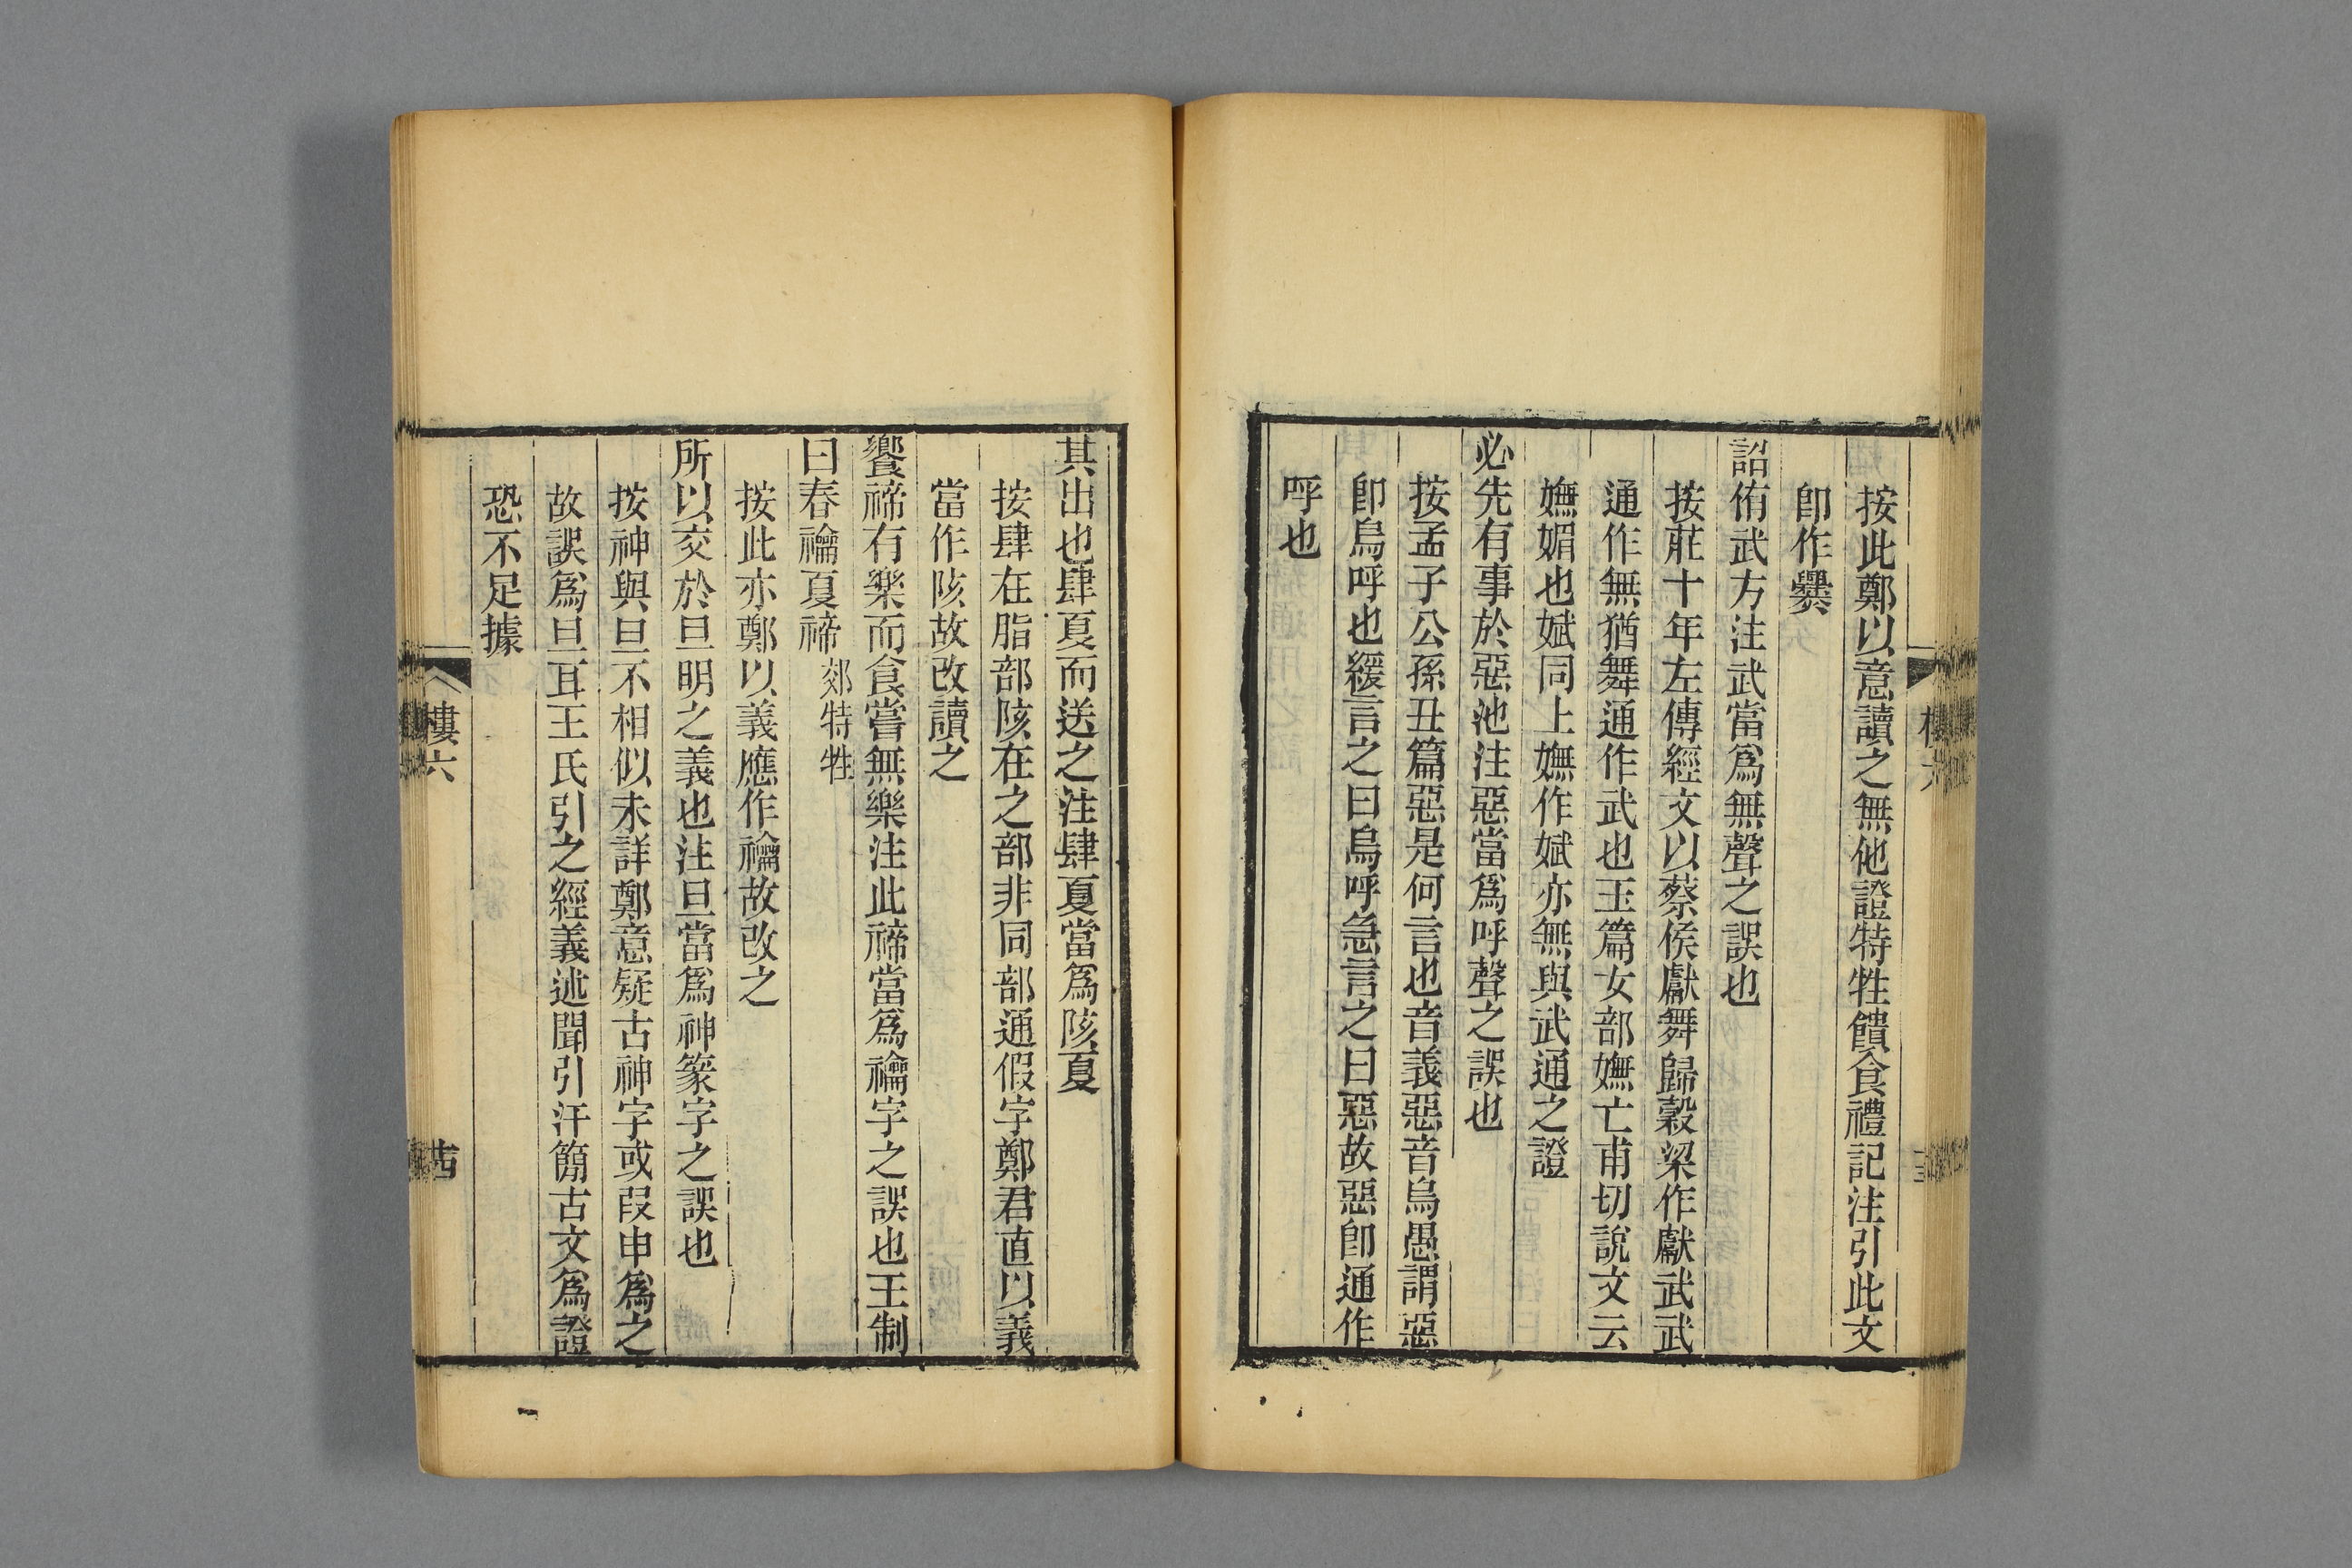 按此鄭以意讀之無他證特牲饋食禮記注引此文
卽作爨
詔侑武方注武當爲無聲之誤也
按莊十年左傳經文以蔡侯獻舞歸穀梁作獻武武
通作無猶舞通作武也玉篇女部嫵亡甫切說文云
嫵媚也娬同上嫵作娬亦無與武通之證
必先有事於惡池注惡當爲呼聲之誤也
按孟子公孫丑篇惡是何言也音義惡音烏愚謂惡
卽烏呼也緩言之曰烏呼急言之曰惡故惡卽通作
呼也
其出也肆夏而送之注肆夏當爲陔夏
按肆在脂部陔在之部非同部通假字鄭君直以義
當作陔故改讀之
饗禘有樂而食嘗無樂注此禘當爲禴字之誤也王制
曰春禴夏禘郊特牲
按此亦鄭以義應作禴故改之
所以交於旦明之義也注旦當爲神篆字之誤也
按神與旦不相似未詳鄭意疑古神字或叚申爲之
故誤爲旦耳王氏引之經義述聞引汗簡古文爲證
恐不足據
樓六
茜